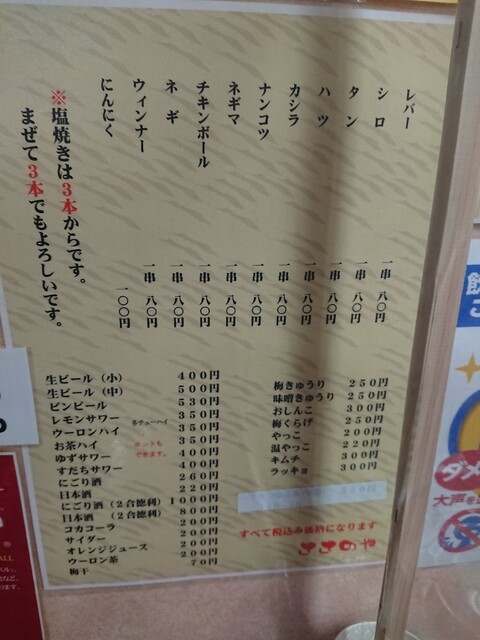 レバー 一串 八〇円
シロ 一串 八〇円
タン 一串 八〇円
ハツ 一串 八〇円
カシラ 一串 八〇円
ナンコツ 一串 八〇円
ネギマ 一串 八〇円
チキンボール 一串 八〇円
ネギ 一串 八〇円
ウィンナー 一串 八〇円
にんにく 一〇〇円
※塩焼きは3本からです。
まぜて3本でもよろしいです。
生ビール（小） 400円
生ビール（中） 500円
ビンビール 530円
レモンサワー 350円
ウーロンハイ 350円
お茶ハイ 350円
ホットも
できます。
ゆずサワー 400円
すだちサワー 400円
にごり酒 260円
日本酒 220円
にごり酒（2合徳利） 1000円
日本酒（2合徳利） 800円
コカコーラ 200円
サイダー 200円
オレンジジュース 200円
ウーロン茶 200円
梅干 70円
梅きゅうり 250円
味噌きゅうり 250円
おしんこ 300円
梅くらげ 250円
やっこ 200円
温やっこ 220円
キムチ 300円
ラッキョ 300円
すべて税込み価格になります
ささのや
飲
ダメ
大声を